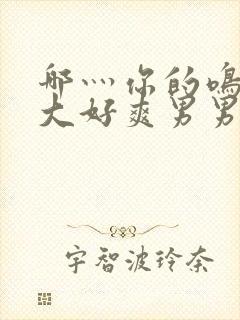 哪灬你的鸣
大好爽男男
宇智波玲奈